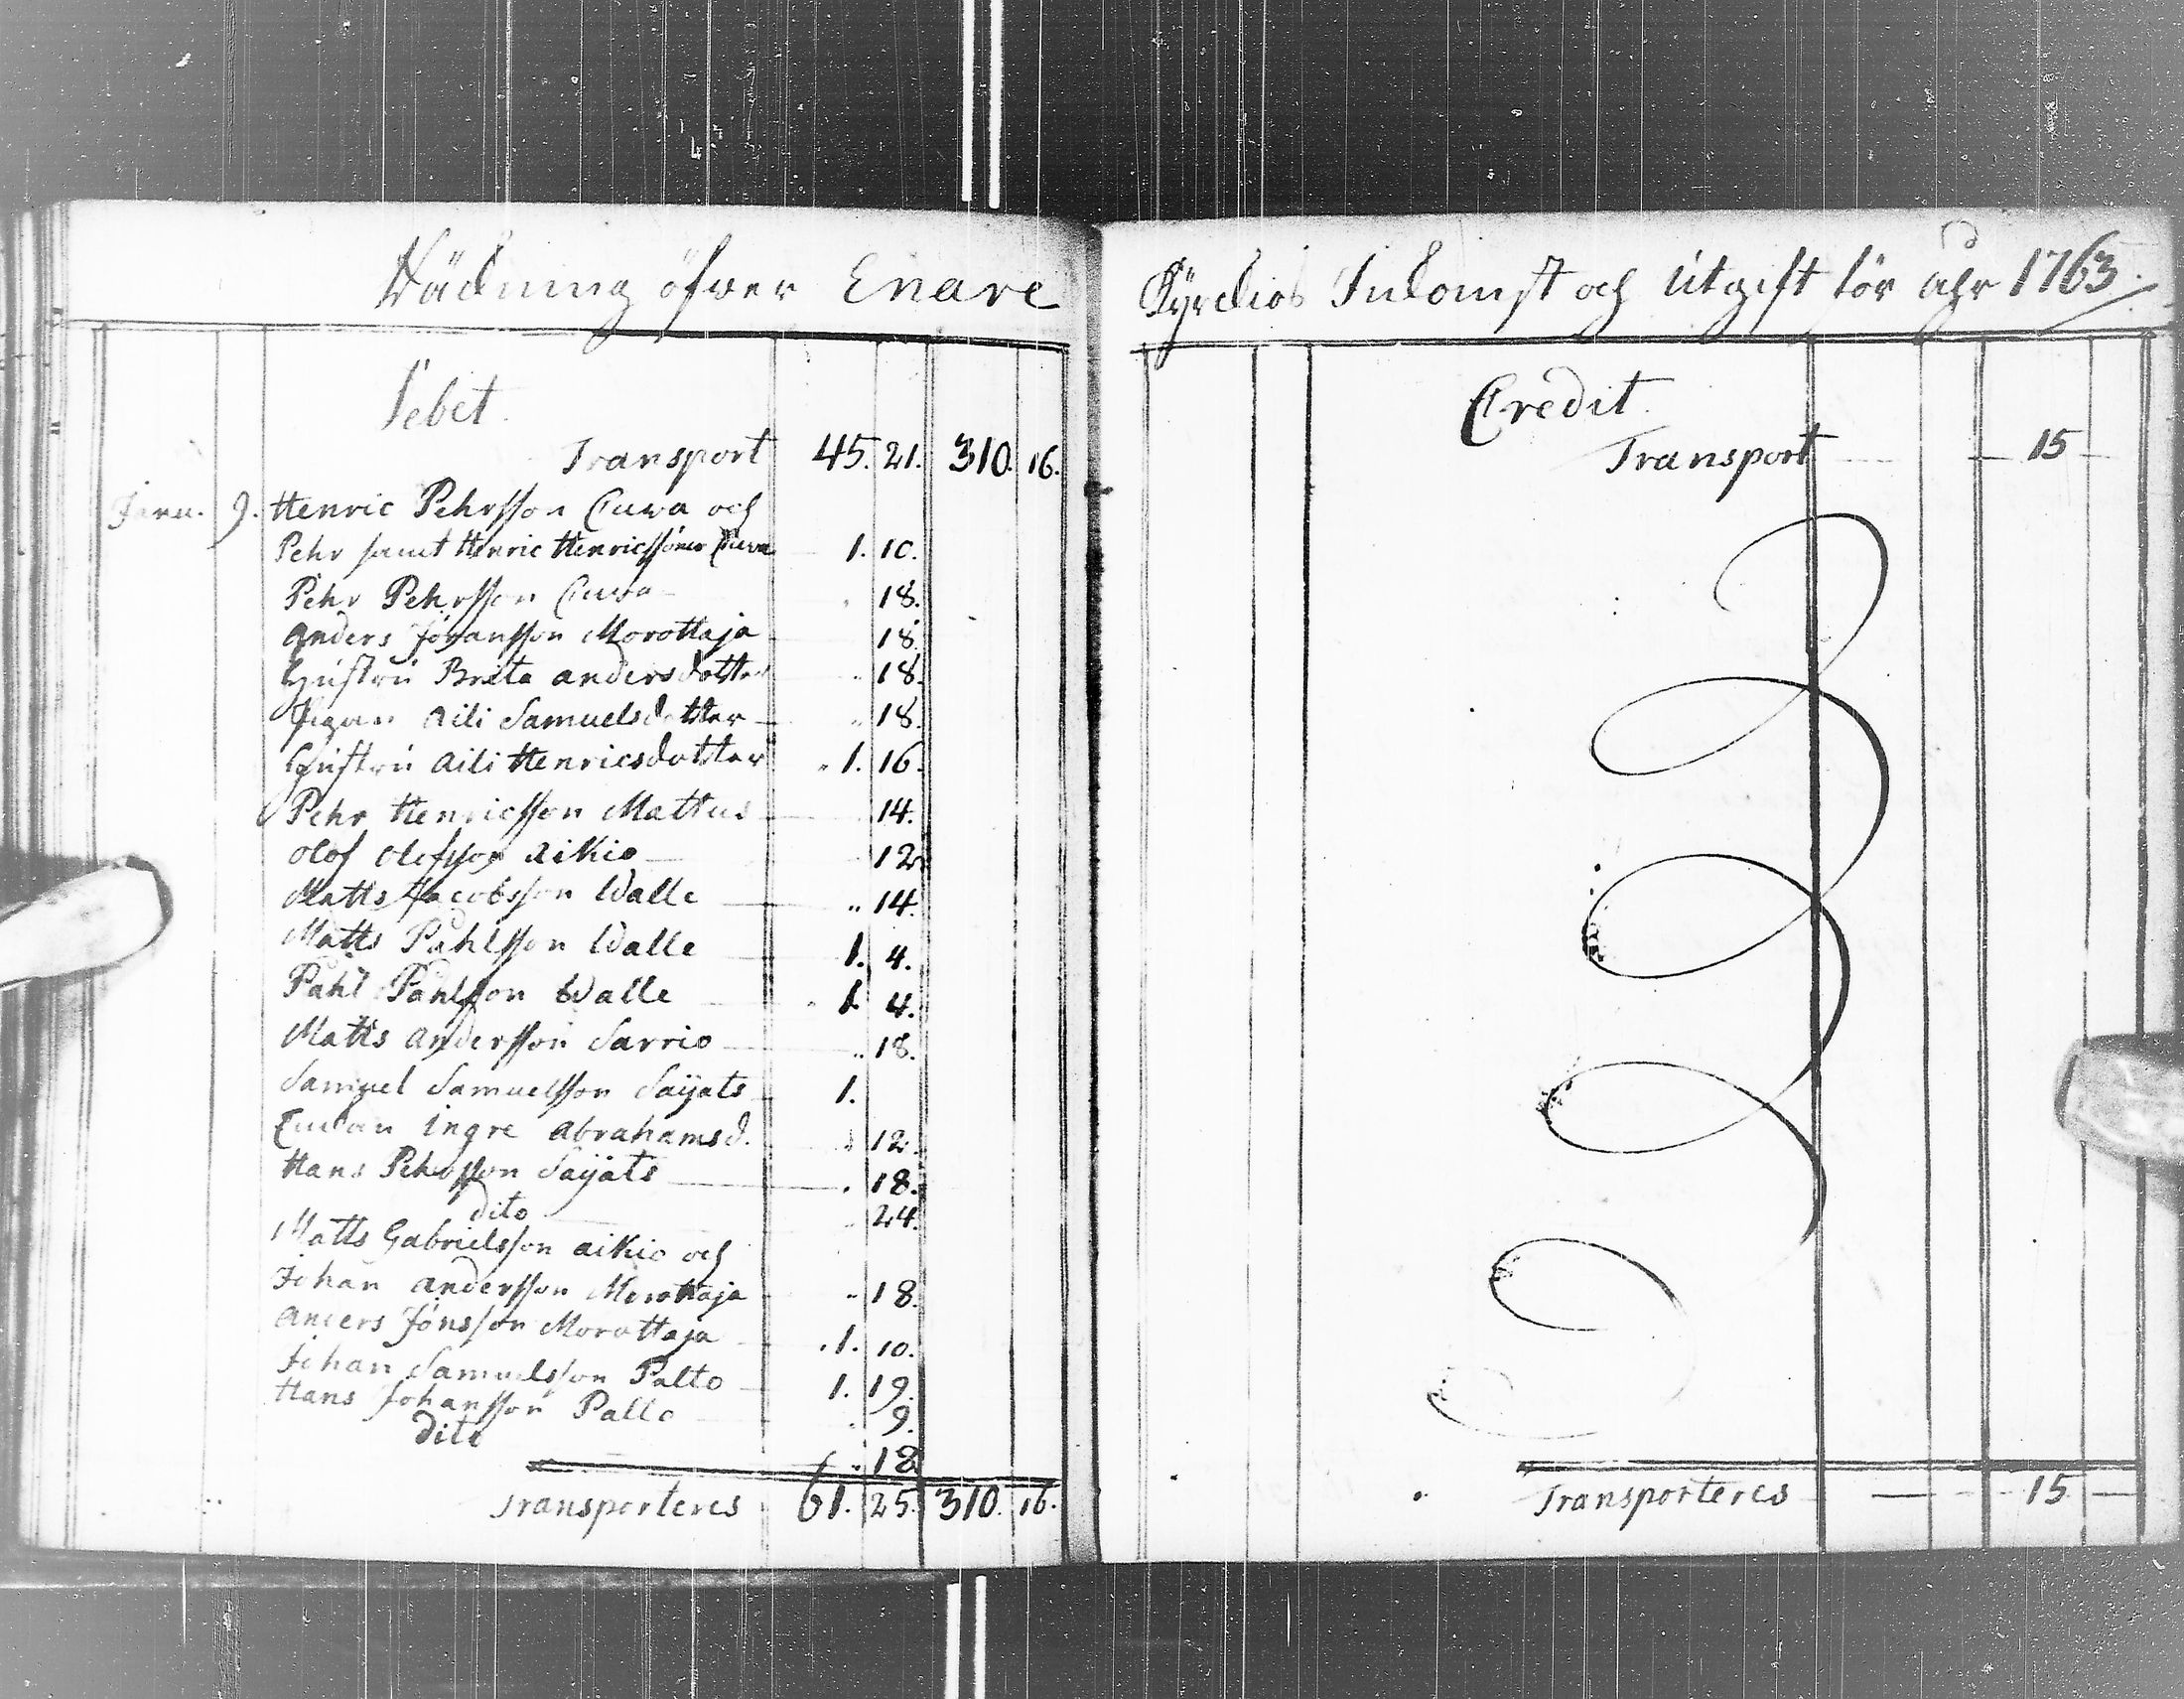 Räkning öfwer Enare
Debet.
Transport 45. 21. 310. 16.
Janu. 9. Henric Pehrsson Cuwa och
Pehr samt Henric Henricssöner Cuwa 1. 10.
Pehr Pehrsson Cuwa 18.
Anders Jöransson Morottaja 18.
Hustru Brita Andersdotter 18.
Pigan Aili Samuelsdotter 18.
Hustru Aili Henricsdotter 1. 16.
Pehr Henricsson Mattus 14.
Olof Olofsson Aikio 12
Matts Jacobsson Walle 14.
Matts Påhlsson Walle 1. 4.
Påhl Påhlsson Walle 1. 4.
Matts Andersson Sarrio 18.
Samuel Samuelsson Saijats 1.
Enkan Ingre Abrahamsd. 12.
Hans Pehrsson Saijats 18.
dito 24.
Matts Gabrielsson Aikio och
Johan Andersson Morottaja 18.
Anders Jönsson Morottaja 1. 10.
Johan Samuelsson Palto 1. 19.
Hans Johansson Palto 9.
dito 18
Transporteres 61. 25. 310. 16.
Kyrckios Inkomst och Utgift för åhr 1763.
Credit.
Transport 15
Transporteres 15